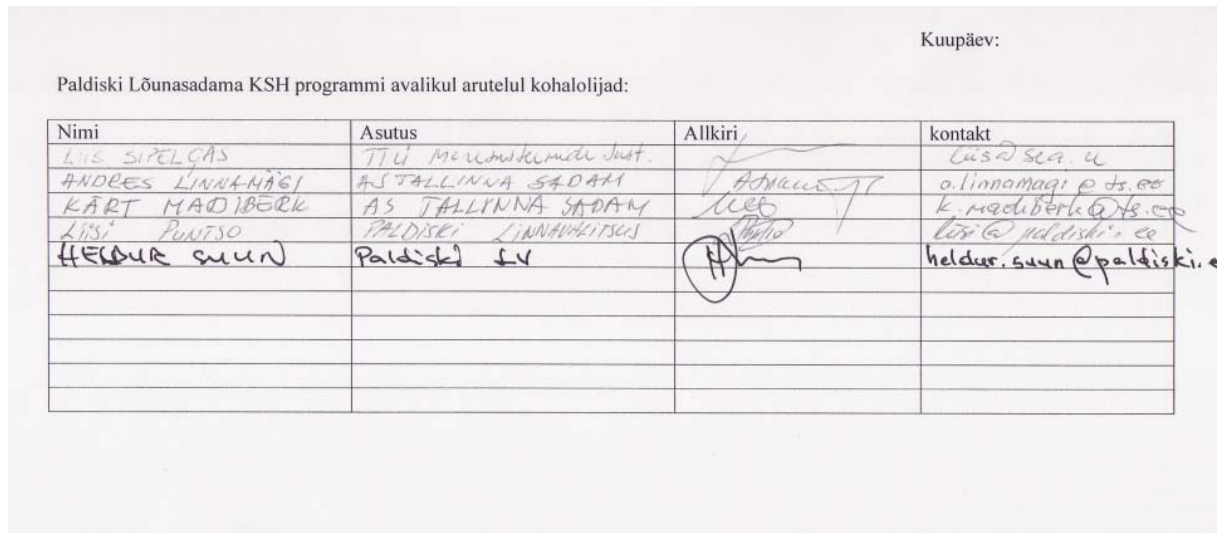 Kuupäev:
Paldiski Lõunasadama KSH programmi avalikul arutelul kohalolijad:
Nimi Asutus Allkiri kontakt
LIIS SIPELGAS TTÜ Meresüsteemide Inst. liis@sea.
ANDRES LINNAMÄGI AS TALLINNA SADAM a.linnamagi@ts.ee
KÄRT MADIBERK AS TALLINNA SADAM k.madiberk@ts.ee
LIISI PUNTSO PALDISKI LINNAVALITSUS liisi@paldiski.ee
HELDUR SUUN Paldiski LV heldur.suun@paldiski.e